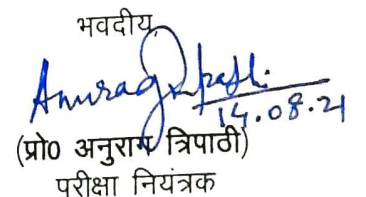 भवदीय
Anurag Tripathi
14.08.21
(प्रो0 अनुराग त्रिपाठी)
परीक्षा नियंत्रक